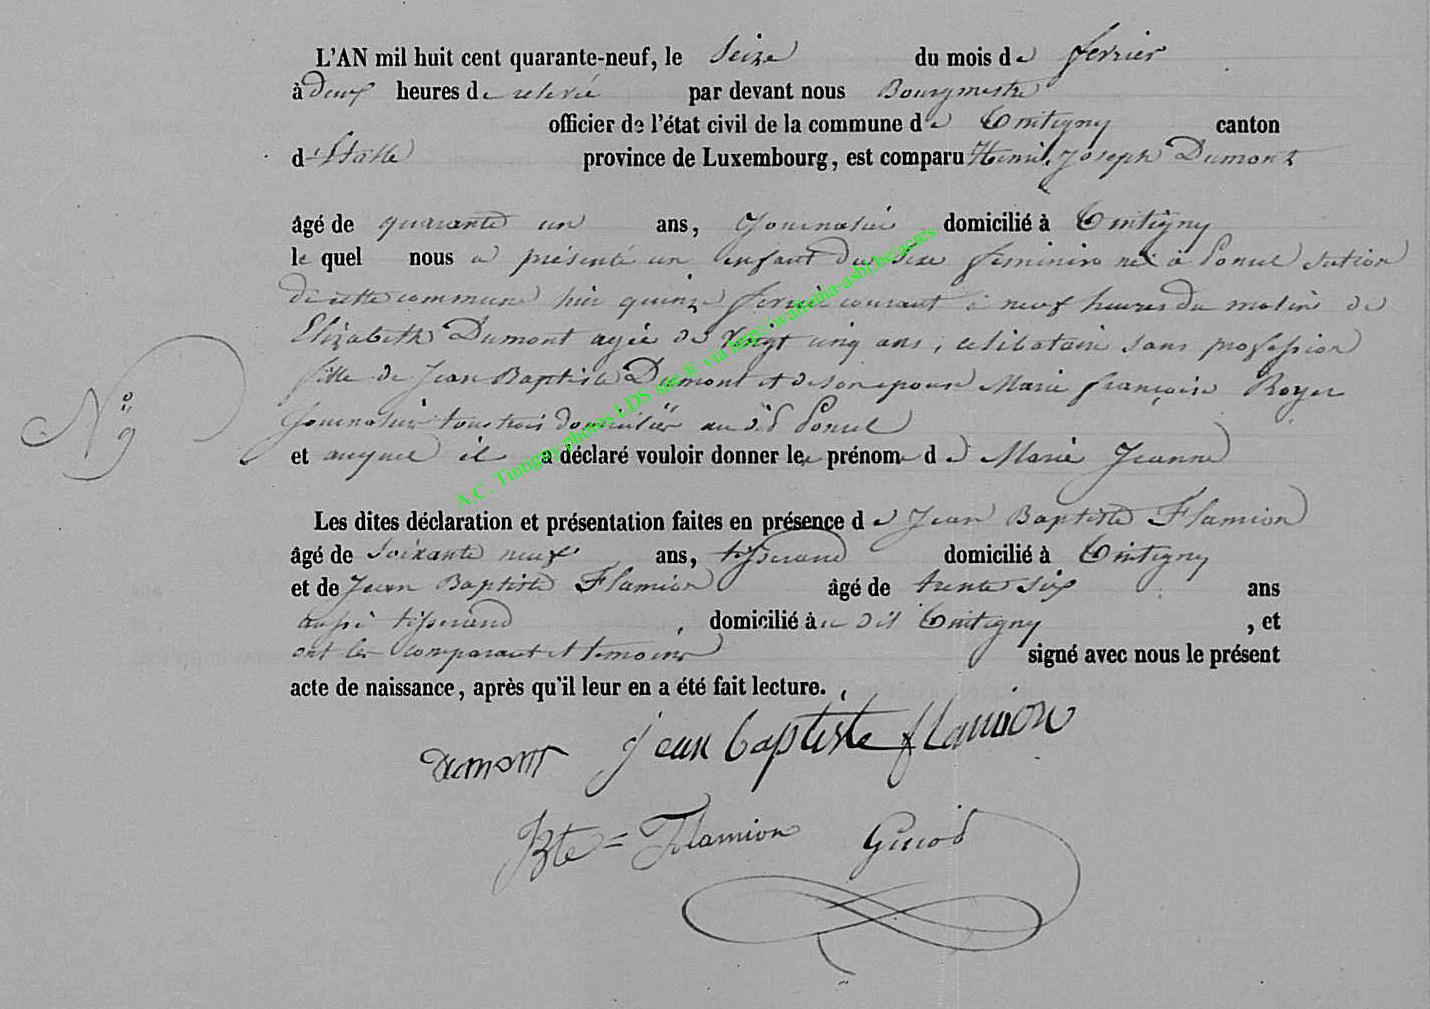 L'AN mil huit cent quarante-neuf, le Seize du mois de fevrier
à deux heures de relevée par devant nous Bourgmestre
officier de l'état civil de la commune de Tintigny canton
d'Etalle province de Luxembourg, est comparu Henri, Joseph Dumont
âgé de quarante un ans, Journalier domicilié à Tintigny
le quel nous a présenté un enfant du sexe féminin né à Poncel section
de cette commune hier quinze fevrier courant à neuf heures du matin de
Elizabeth Dumont agée de vingt cinq ans, celibataire sans profession
fille de Jean Baptiste Dumont et de son epouse Marie françoise Royer
N° 9
Journalier tous trois domiciliés au dit Poncel
et auquel il a déclaré vouloir donner le prénom de Marie Jeanne
Les dites déclaration et présentation faites en présence de Jean Baptiste Flamion
âgé de Soixante neuf ans, tisserand domicilié à Tintigny
et de Jean Baptiste Flamion âgé de trente six ans
aussi tisserand, domicilié au dit Tintigny, et
ont les comparant et temoins signé avec nous le présent
acte de naissance, après qu'il leur en a été fait lecture.
Dumont jean baptiste flamion
JBte = Flamion
A.C. Tintigny photos LDS site ® via http://wallonia-asbl.be/actes